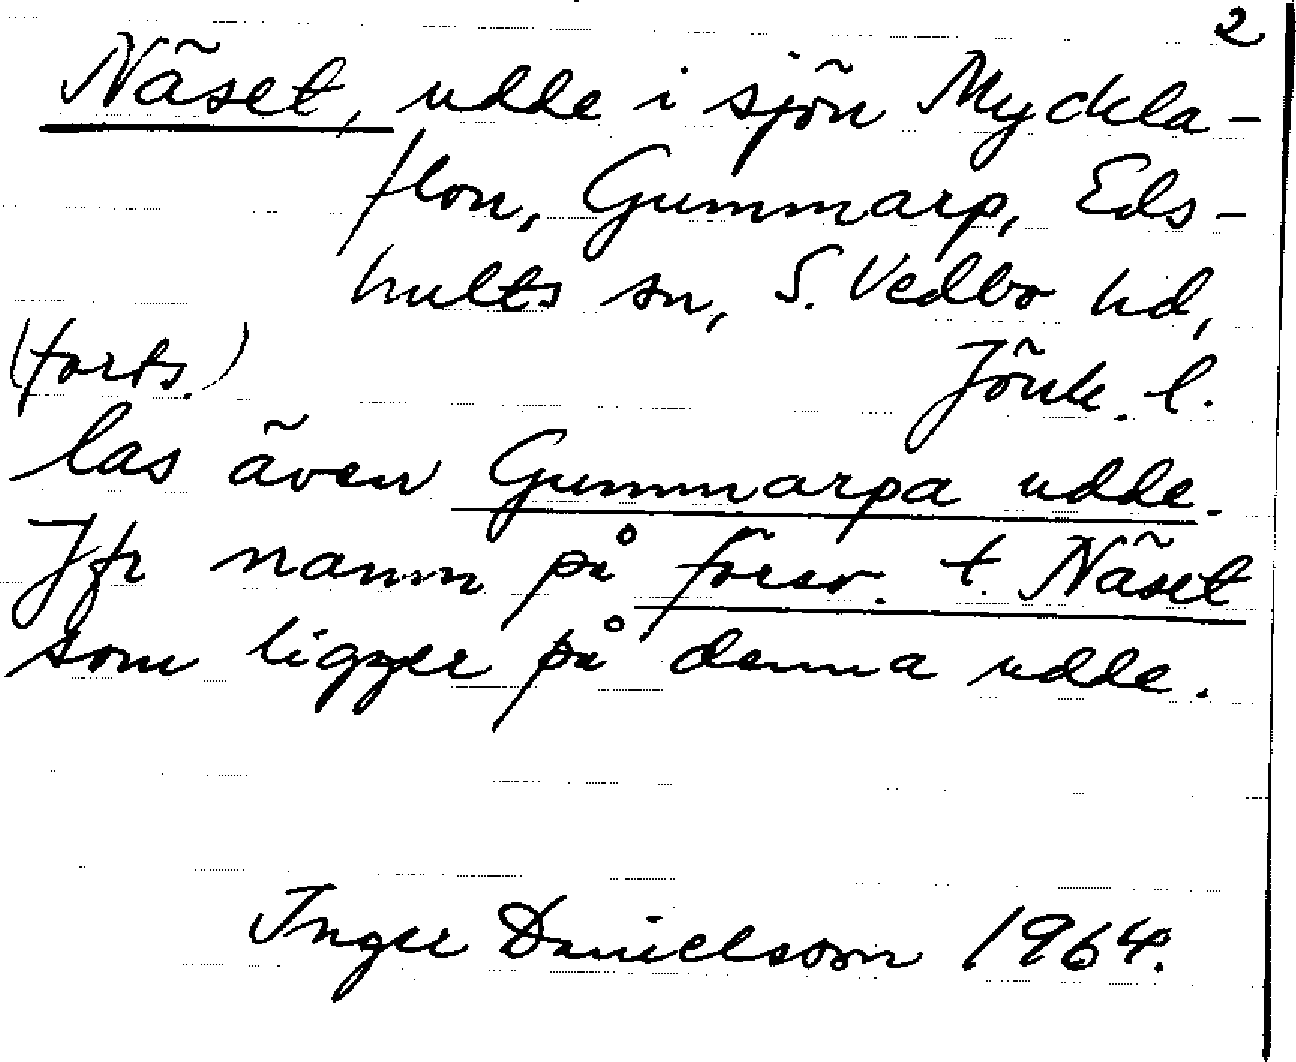 2
Näset, udde i sjön Myckla-
flon, Gummarp, Eds-
hults sn, S. Vedbo hd,
Jönk. l.
(forts.)
las även Gummarpa udde.
Jfr namn på försv. t. Näset
som ligger på denna udde.
Inger Danielsson 1964.